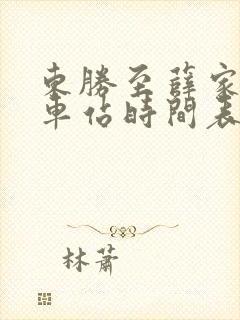 東勝至薛家
車佔時間表
林蕭